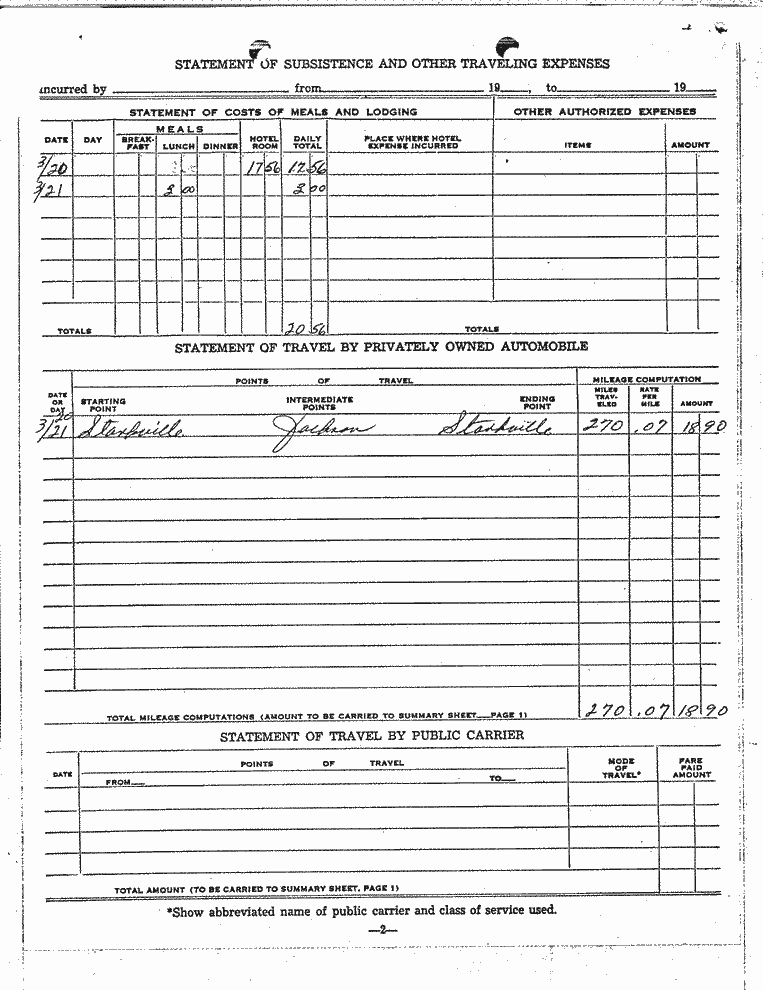 STATEMENT OF SUBSISTENCE AND OTHER TRAVELING EXPENSES
incurred by from 19 , to 19
STATEMENT OF COSTS OF MEALS AND LODGING OTHER AUTHORIZED EXPENSES
DATE DAY MEALS BREAK-FAST LUNCH DINNER HOTEL ROOM DAILY TOTAL PLACE WHERE HOTEL EXPENSE INCURRED ITEMS AMOUNT
3/20 17 56 17 56
3/21 00 00
TOTALS 20 56 TOTALS
STATEMENT OF TRAVEL BY PRIVATELY OWNED AUTOMOBILE
POINTS OF TRAVEL MILEAGE COMPUTATION
DATE OR DAY STARTING POINT INTERMEDIATE POINTS ENDING POINT MILES TRAV-ELED RATE PER MILE AMOUNT
20
3/21 Starkville Jackson Starkville 270 .07 18 90
TOTAL MILEAGE COMPUTATIONS (AMOUNT TO BE CARRIED TO SUMMARY SHEET—PAGE 1) 270 .07 18 90
STATEMENT OF TRAVEL BY PUBLIC CARRIER
DATE POINTS OF TRAVEL MODE OF TRAVEL* FARE PAID AMOUNT
FROM— TO—
TOTAL AMOUNT (TO BE CARRIED TO SUMMARY SHEET, PAGE 1)
*Show abbreviated name of public carrier and class of service used.
—2—